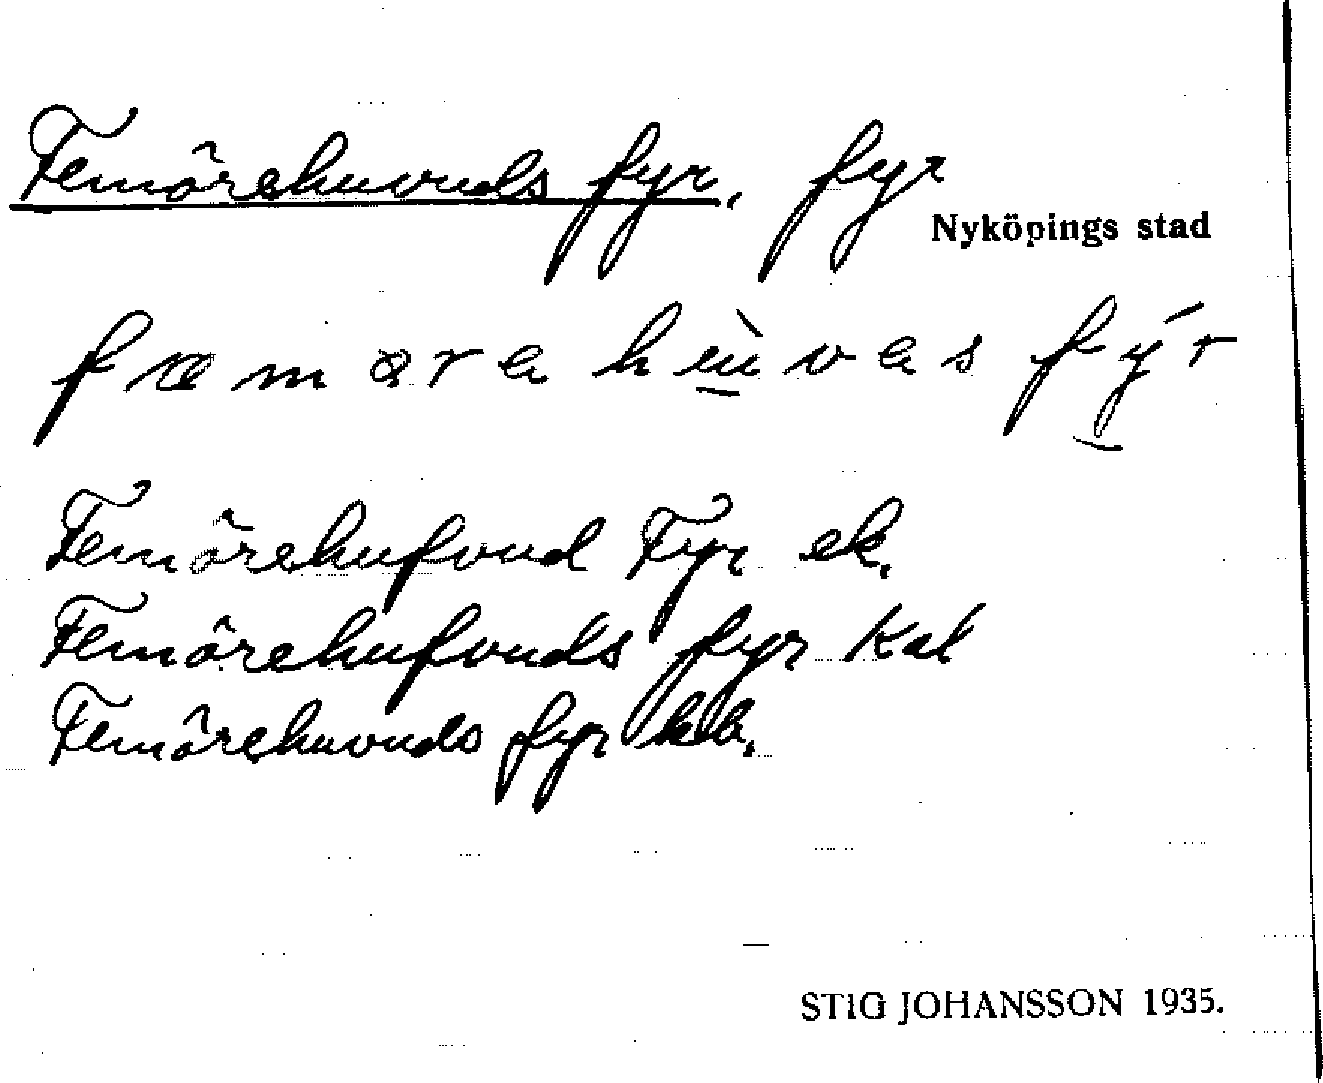 Femörehuvuds fyr, fyr
Nyköpings stad
fæmɵrɵ hɯ̀vɵs fýr
Femörehufvud Fyr ek.
Femörehufvuds fyr Kal
Femörehuvuds fyr kb.
STIG JOHANSSON 1935.